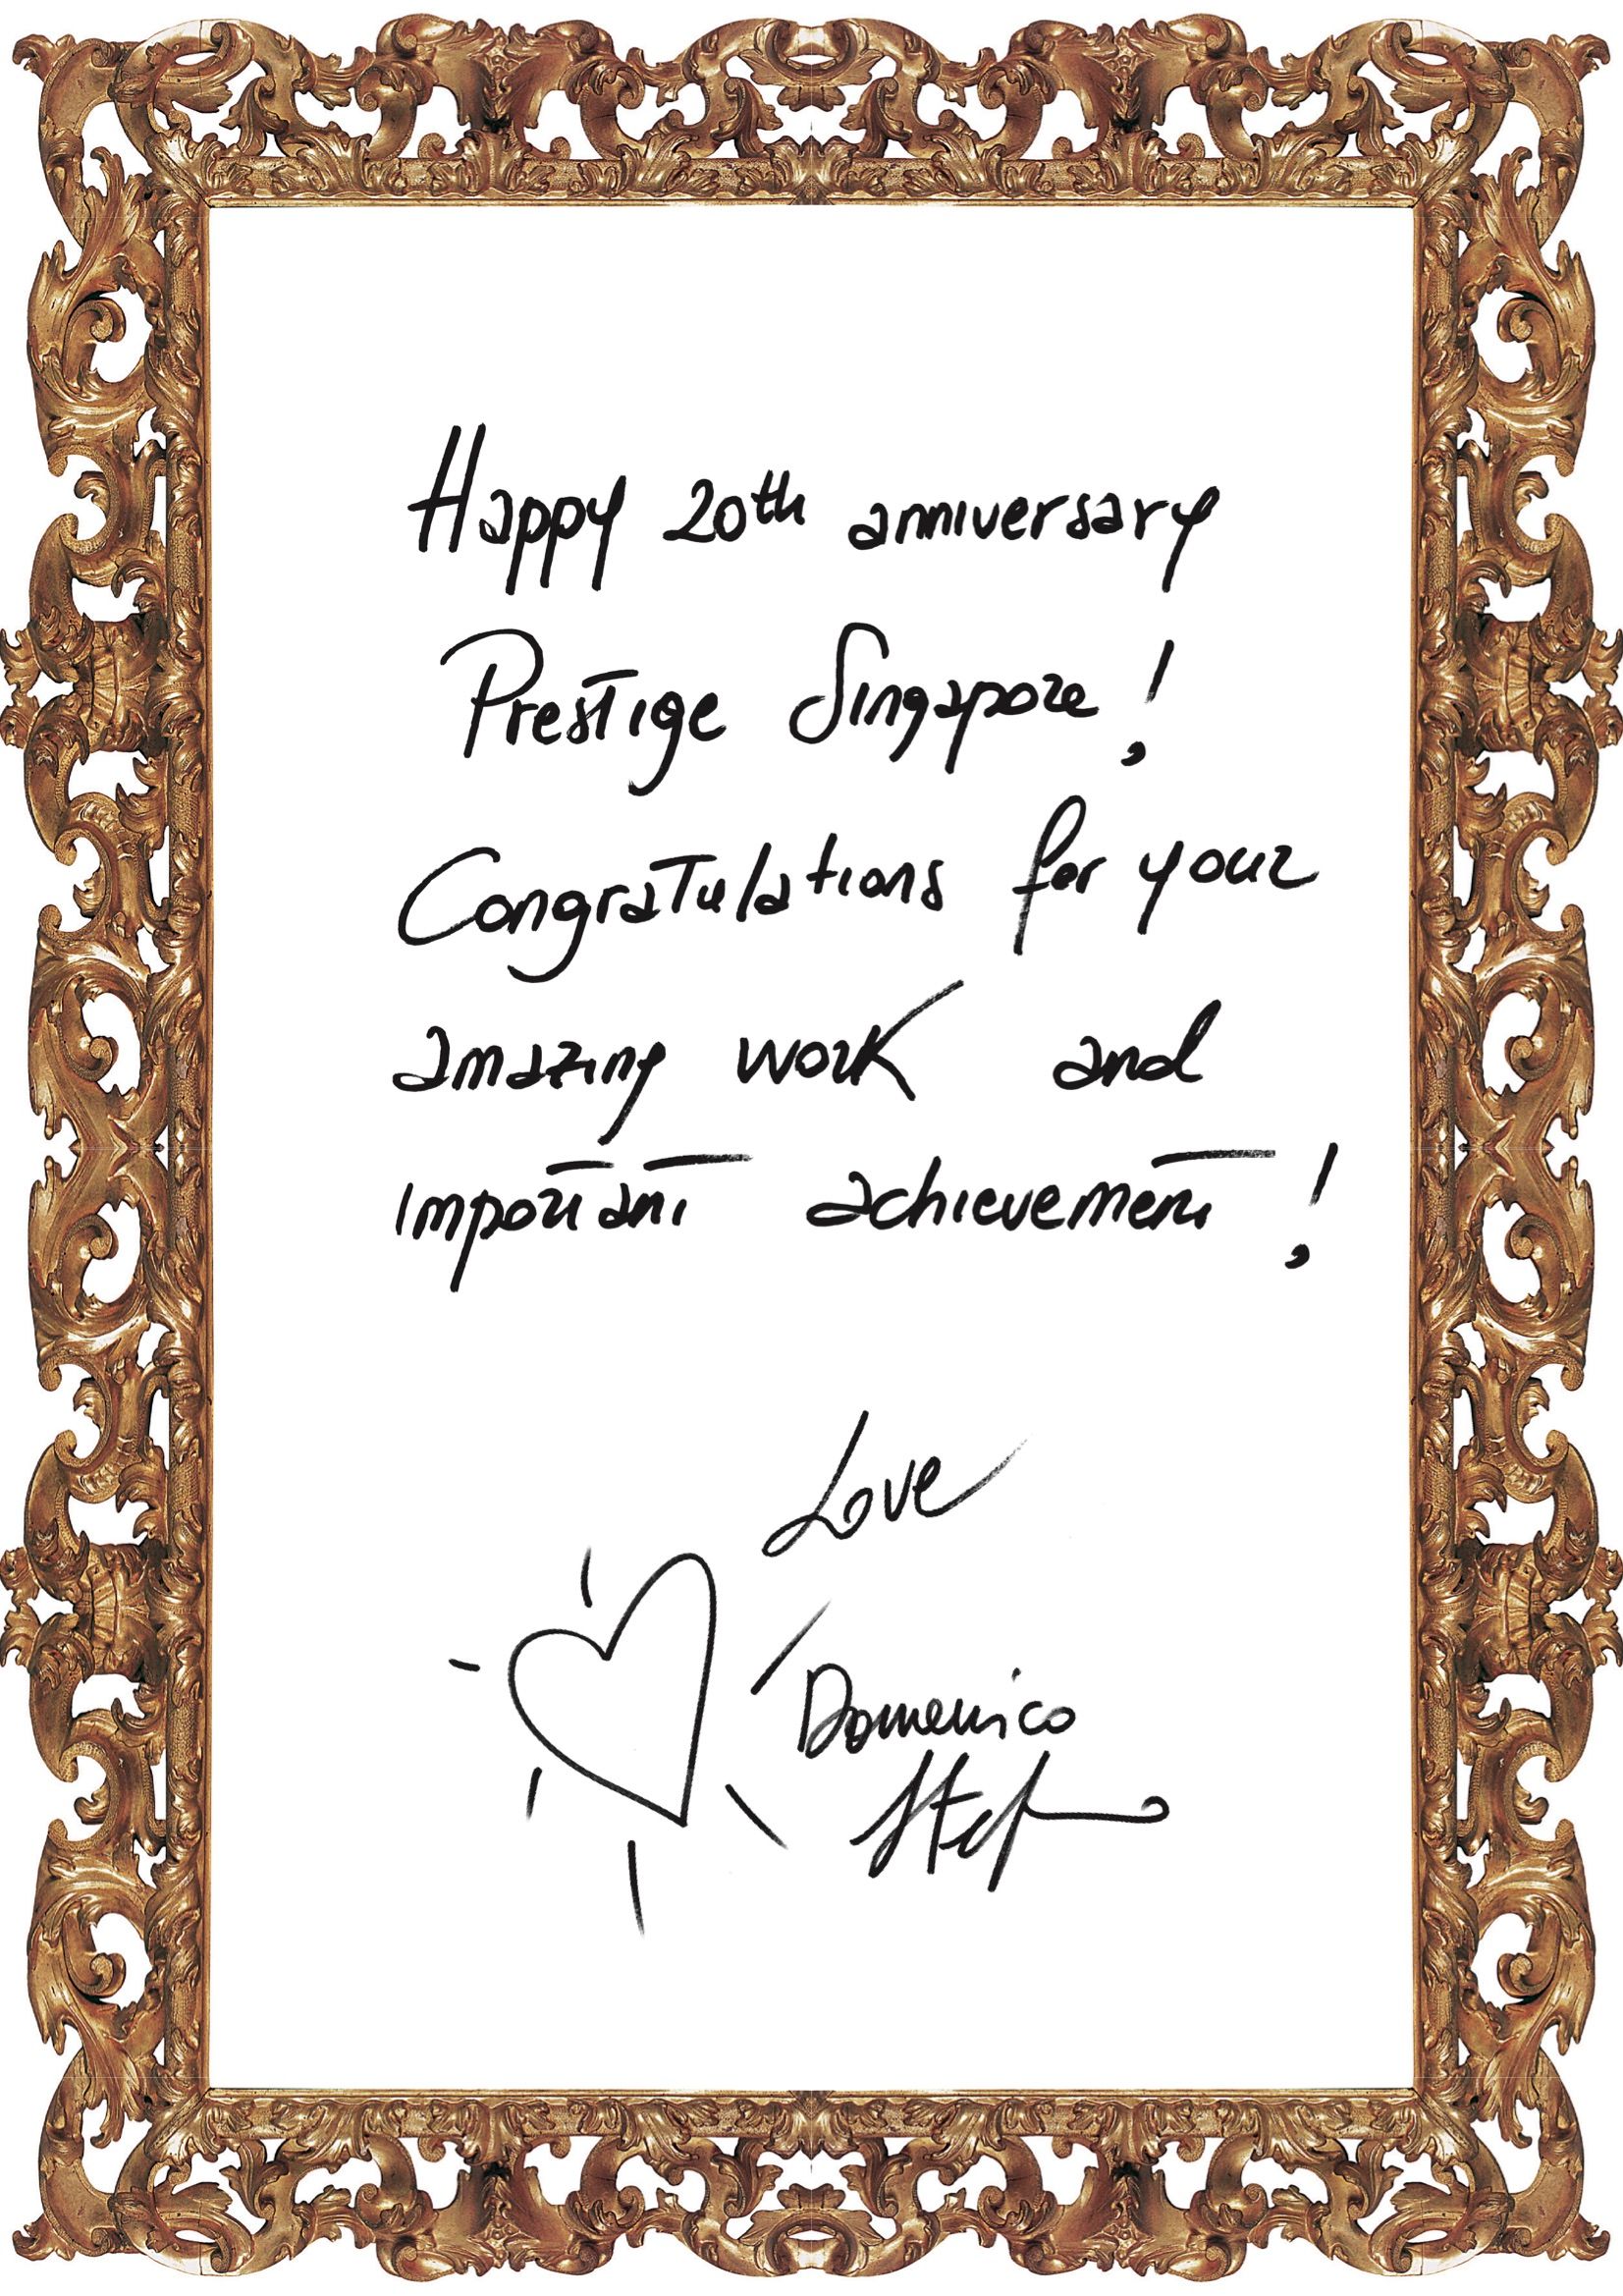 Happy 20th anniversary
Prestige Singapore!
Congratulations for your
amazing work and
important achievement!
Love
Domenico